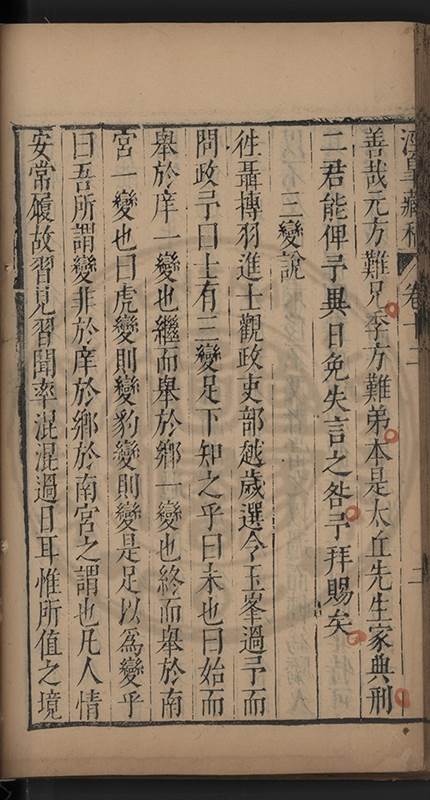 涇臯藏稿 卷十二 二
善哉元方難兄季方難弟本是太丘先生家典刑
二君能俾予異日免失言之咎予拜賜矣
三變說
徃聶摶羽進士觀政吏部越歲選令玉峯過予而
問政予曰士有三變足下知之乎曰未也曰始而
舉於庠一變也繼而舉於鄉一變也終而舉於南
宮一變也曰虎變則變豹變則變是足以為變乎
曰吾所謂變非於庠於鄉於南宮之謂也凡人情
安常履故習見習聞率混混過日耳惟所值之境